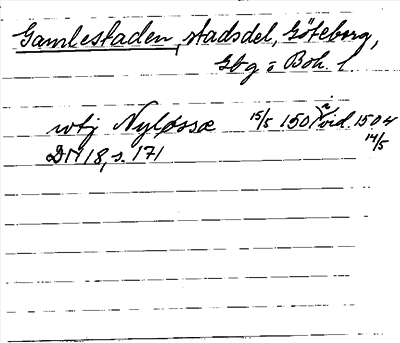 Gamlestaden, stadsdel, Göteborg,
Gbg o Boh. l.
wtj Nyløssæ 15/5 150 vid. 1504
14/5
DN 18, s. 171